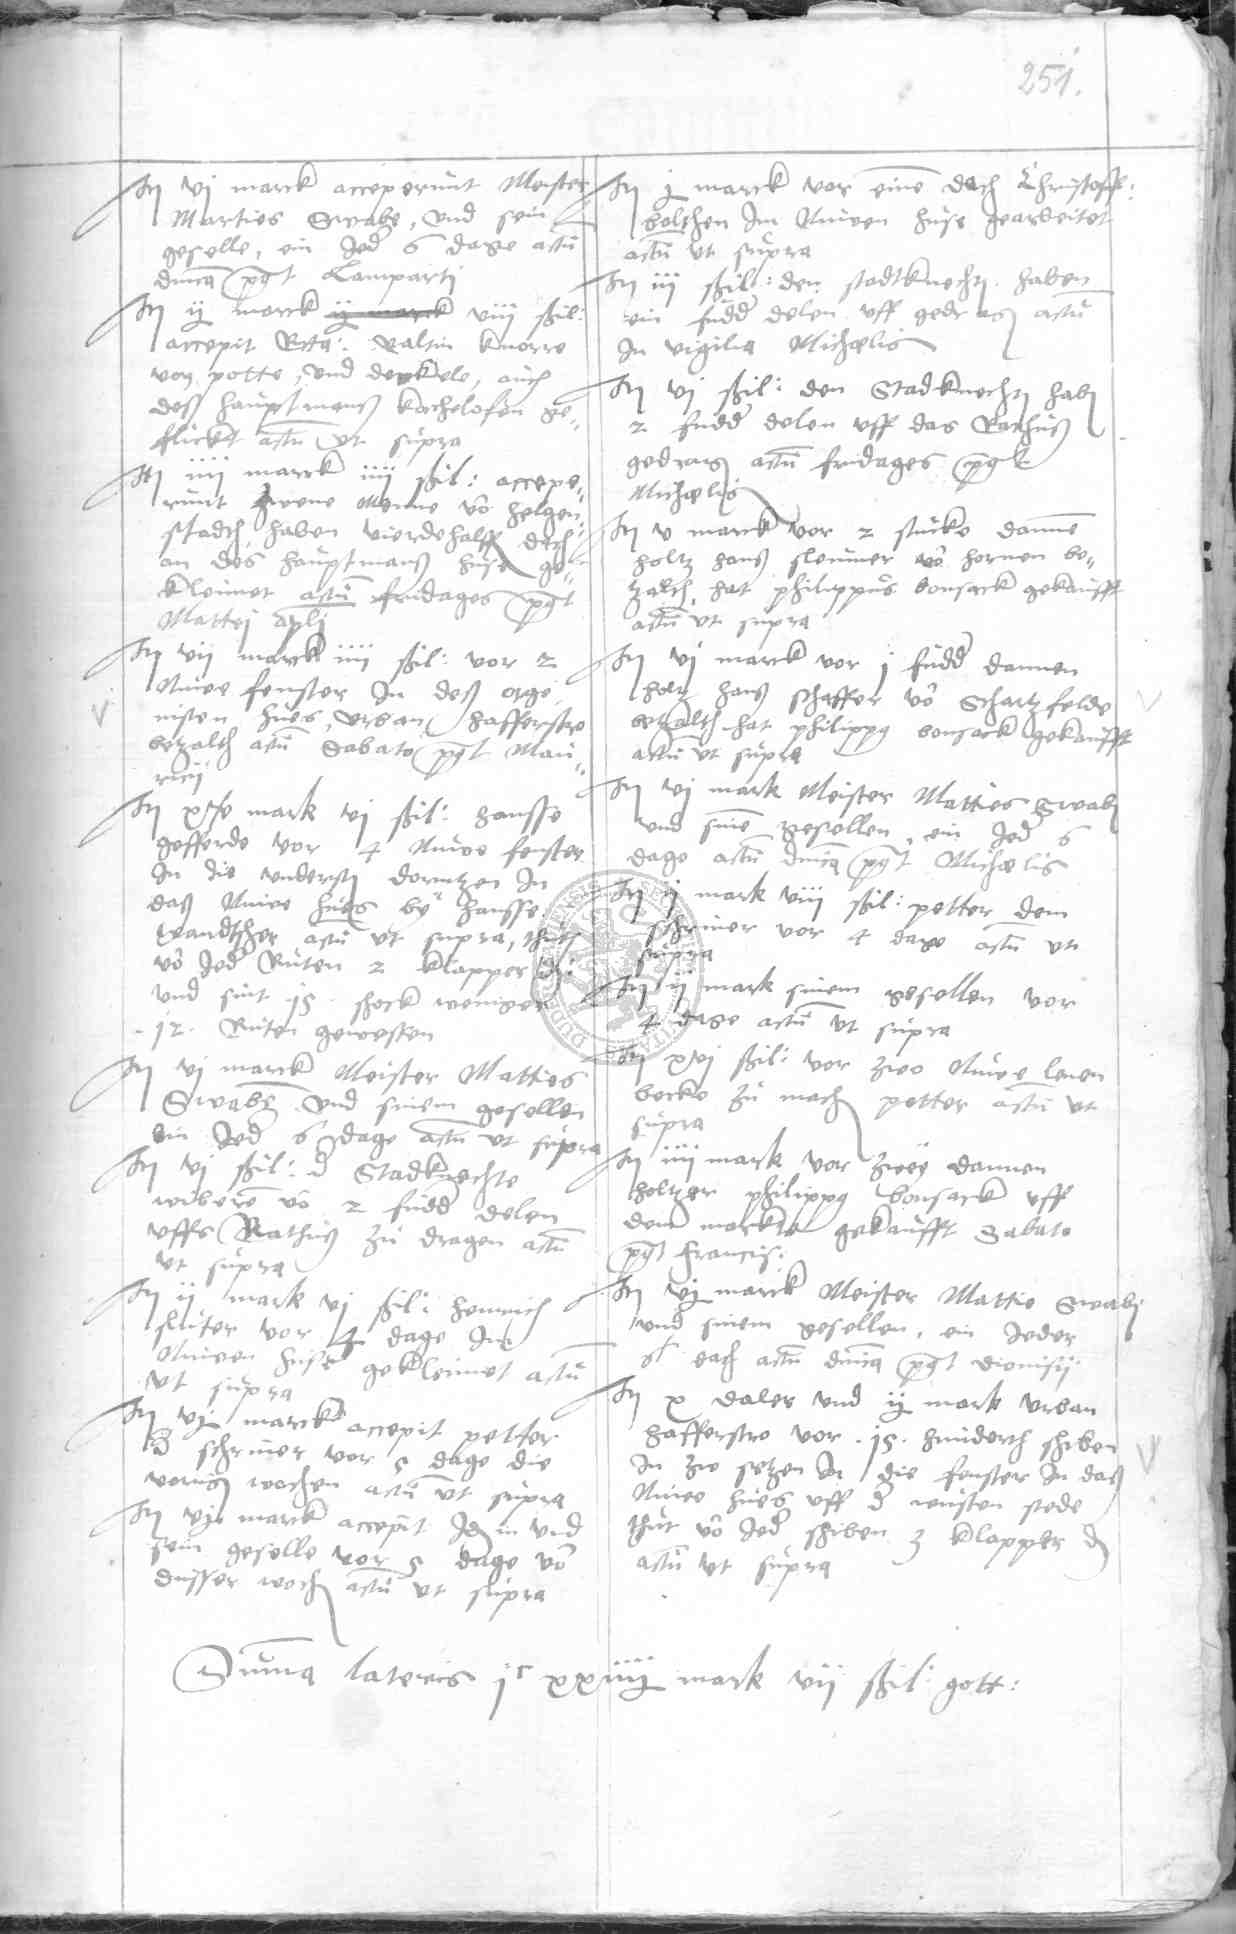 251.
Itȝ vj marck acceperunt Meister
Matties Swabe, vnd sein
geselle, ein Jed 6 dage actu
dnica pqt Lamparti
Itȝ ij marck ij marck viij ßil:
accepit Valtin knorre
von potte, vnd deckele, auch
deß hauptmanß kachelofen ge-
flickt actu vt supra
Itȝ iiij marck iiij ßil: accepe-
runt zwene Menne vo helgen-
stadt, haben vierdehalff dach
an des hauptmanß huse ge-
kleimet actu fridages pqt
Mattei apli
Itȝ vij marck iiij ßil: vor 2
Nuwe fenster In deß orge
nisten hues, vrban hafferstro
betzalth actu Sabato pqt Mau-
ricij
mark vj ßil: Hansse
gefferde vor 4 Nuwe fenster
In die vnderst dorntzen In
daß Nuwe hues by Hansse
actu vt supra, thut
vo Jed Ruten 2 klapper d
vnd sint 15 schock weniger
12. Ruten gewesten
Itȝ vj marck Meister Matties
Swabe vnd sinem gesellen
ein Jed 6 dage actu vt supra
Itȝ vj ßil: d Stadknechte
wiberē vō 2 fudd delen
vffs Rathus zu dragen actu
vt supra
Itȝ ij mark vj ßil: heinrich
sluter vor 4 dage Im
Nuwen huse gekleimet actu
vt supra
Itȝ vj marck accepit petter
d schriner vor 5 dage die
vorig wochen actu vt supra
Itȝ marck accepit Idem vnd
sein geselle vor 5 dage vō
dusser woch actu vt supra
Itȝ marck vor eine dach Christoffl:
bolthen Im Nuwen huse gearbeitet
actu vt supra
Itȝ iij ßil: den stadtknecht haben
ein fudd delen vff gedrag actu
In vigilia Michaelis
Itȝ vj ßil: den Stadknecht hab
2 fudd delen vff das Rathus
gedrag actu fridages pqt
Michaelis
Itȝ v marck vor 2 stucke danne
holtz hans slemmer vō hornen be-
zalth, hat philippus bonsack gekaufft
actu vt supra
Itȝ vj marck vor j fudd dannen
holtz hanß schaffer vō Schartzfelde
betzalth hat philippus bonsack gekaufft
actu vt supra
Itȝ vj mark Meister Matties Swab
vnd sine gesellen, ein Jed 6
dage actu dnica pqt Michaelis
Itȝ ij mark viij ßil: petter dem
schriner vor 4 dage actu vt
supra
Itȝ ij mark sinem gesellen vor
4 dage actu vt supra
Itȝ xvj ßil: vor zwo Nuwe lenen
becke zu mach petter actu vt
supra
Itȝ iiij mark vor zwey dannen
holtzer philippus bonsack vff
dem marckte gekaufft Sabato
pqt Francis:
Itȝ vj marck Meister Mattie Swab
vnd sinem gesellen, ein Jeder
actu dnica pqt dionisij
Itȝ x daler vnd ij mark vrban
Hafferstro vor 15 hunderth schiben
In zu setzen In die fenster In daß
Nuwe hues vff d wusten stede
thut vō Jed schiben 3 klapper d
actu vt supra
Suma lateris jc xxiiij mark vij ßil: gott: